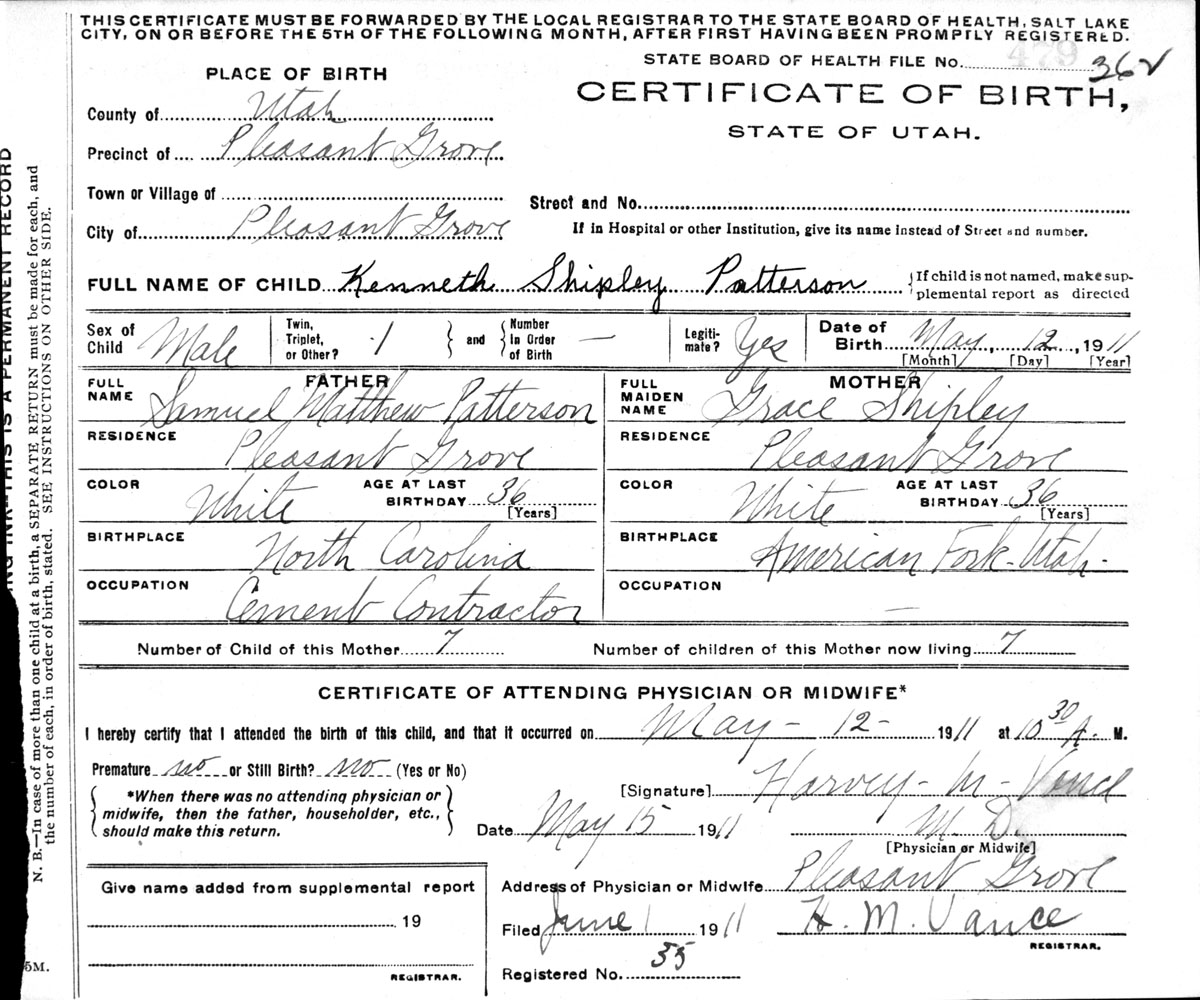 THIS CERTIFICATE MUST BE FORWARDED BY THE LOCAL REGISTRAR TO THE STATE BOARD OF HEALTH, SALT LAKE
CITY, ON OR BEFORE THE 5TH OF THE FOLLOWING MONTH, AFTER FIRST HAVING BEEN PROMPTLY REGISTERED.
STATE BOARD OF HEALTH FILE No. 479 362
PLACE OF BIRTH
CERTIFICATE OF BIRTH,
STATE OF UTAH.
County of Utah
Precinct of Pleasant Grove
Town or Village of
Street and No.
City of Pleasant Grove
If in Hospital or other Institution, give its name instead of Street and number.
FULL NAME OF CHILD Kenneth Shipley Patterson
{If child is not named, make sup-
plemental report as directed
Sex of Child Male
Twin, Triplet, or Other? 1
and
Number In Order of Birth —
Legiti-mate? Yes
Date of Birth May, 12, 1911
[Month] [Day] [Year]
FATHER
FULL NAME Samuel Matthew Patterson
MOTHER
FULL MAIDEN NAME Grace Shipley
RESIDENCE Pleasant Grove
RESIDENCE Pleasant Grove
COLOR White AGE AT LAST BIRTHDAY 36 [Years]
COLOR White AGE AT LAST BIRTHDAY 36 [Years]
BIRTHPLACE North Carolina
BIRTHPLACE American Fork - Utah -
OCCUPATION Cement Contractor
OCCUPATION —
Number of Child of this Mother 7
Number of children of this Mother now living 7
CERTIFICATE OF ATTENDING PHYSICIAN OR MIDWIFE*
I hereby certify that I attended the birth of this child, and that it occurred on May - 12 - 1911 at 10 30 A. M.
Premature no or Still Birth? no (Yes or No)
*When there was no attending physician or
midwife, then the father, householder, etc.,
should make this return.
[Signature] Harvey - M - Vance
Date May 15 1911 M. D.
[Physician or Midwife]
Give name added from supplemental report
19
REGISTRAR.
Address of Physician or Midwife Pleasant Grove
Filed June 1 1911 H. M. Vance
REGISTRAR.
Registered No. 35
ING INK—THIS IS A PERMANENT RECORD
N. B.—In case of more than one child at a birth, a SEPARATE RETURN must be made for each, and
the number of each, in order of birth, stated. SEE INSTRUCTIONS ON OTHER SIDE.
5M.